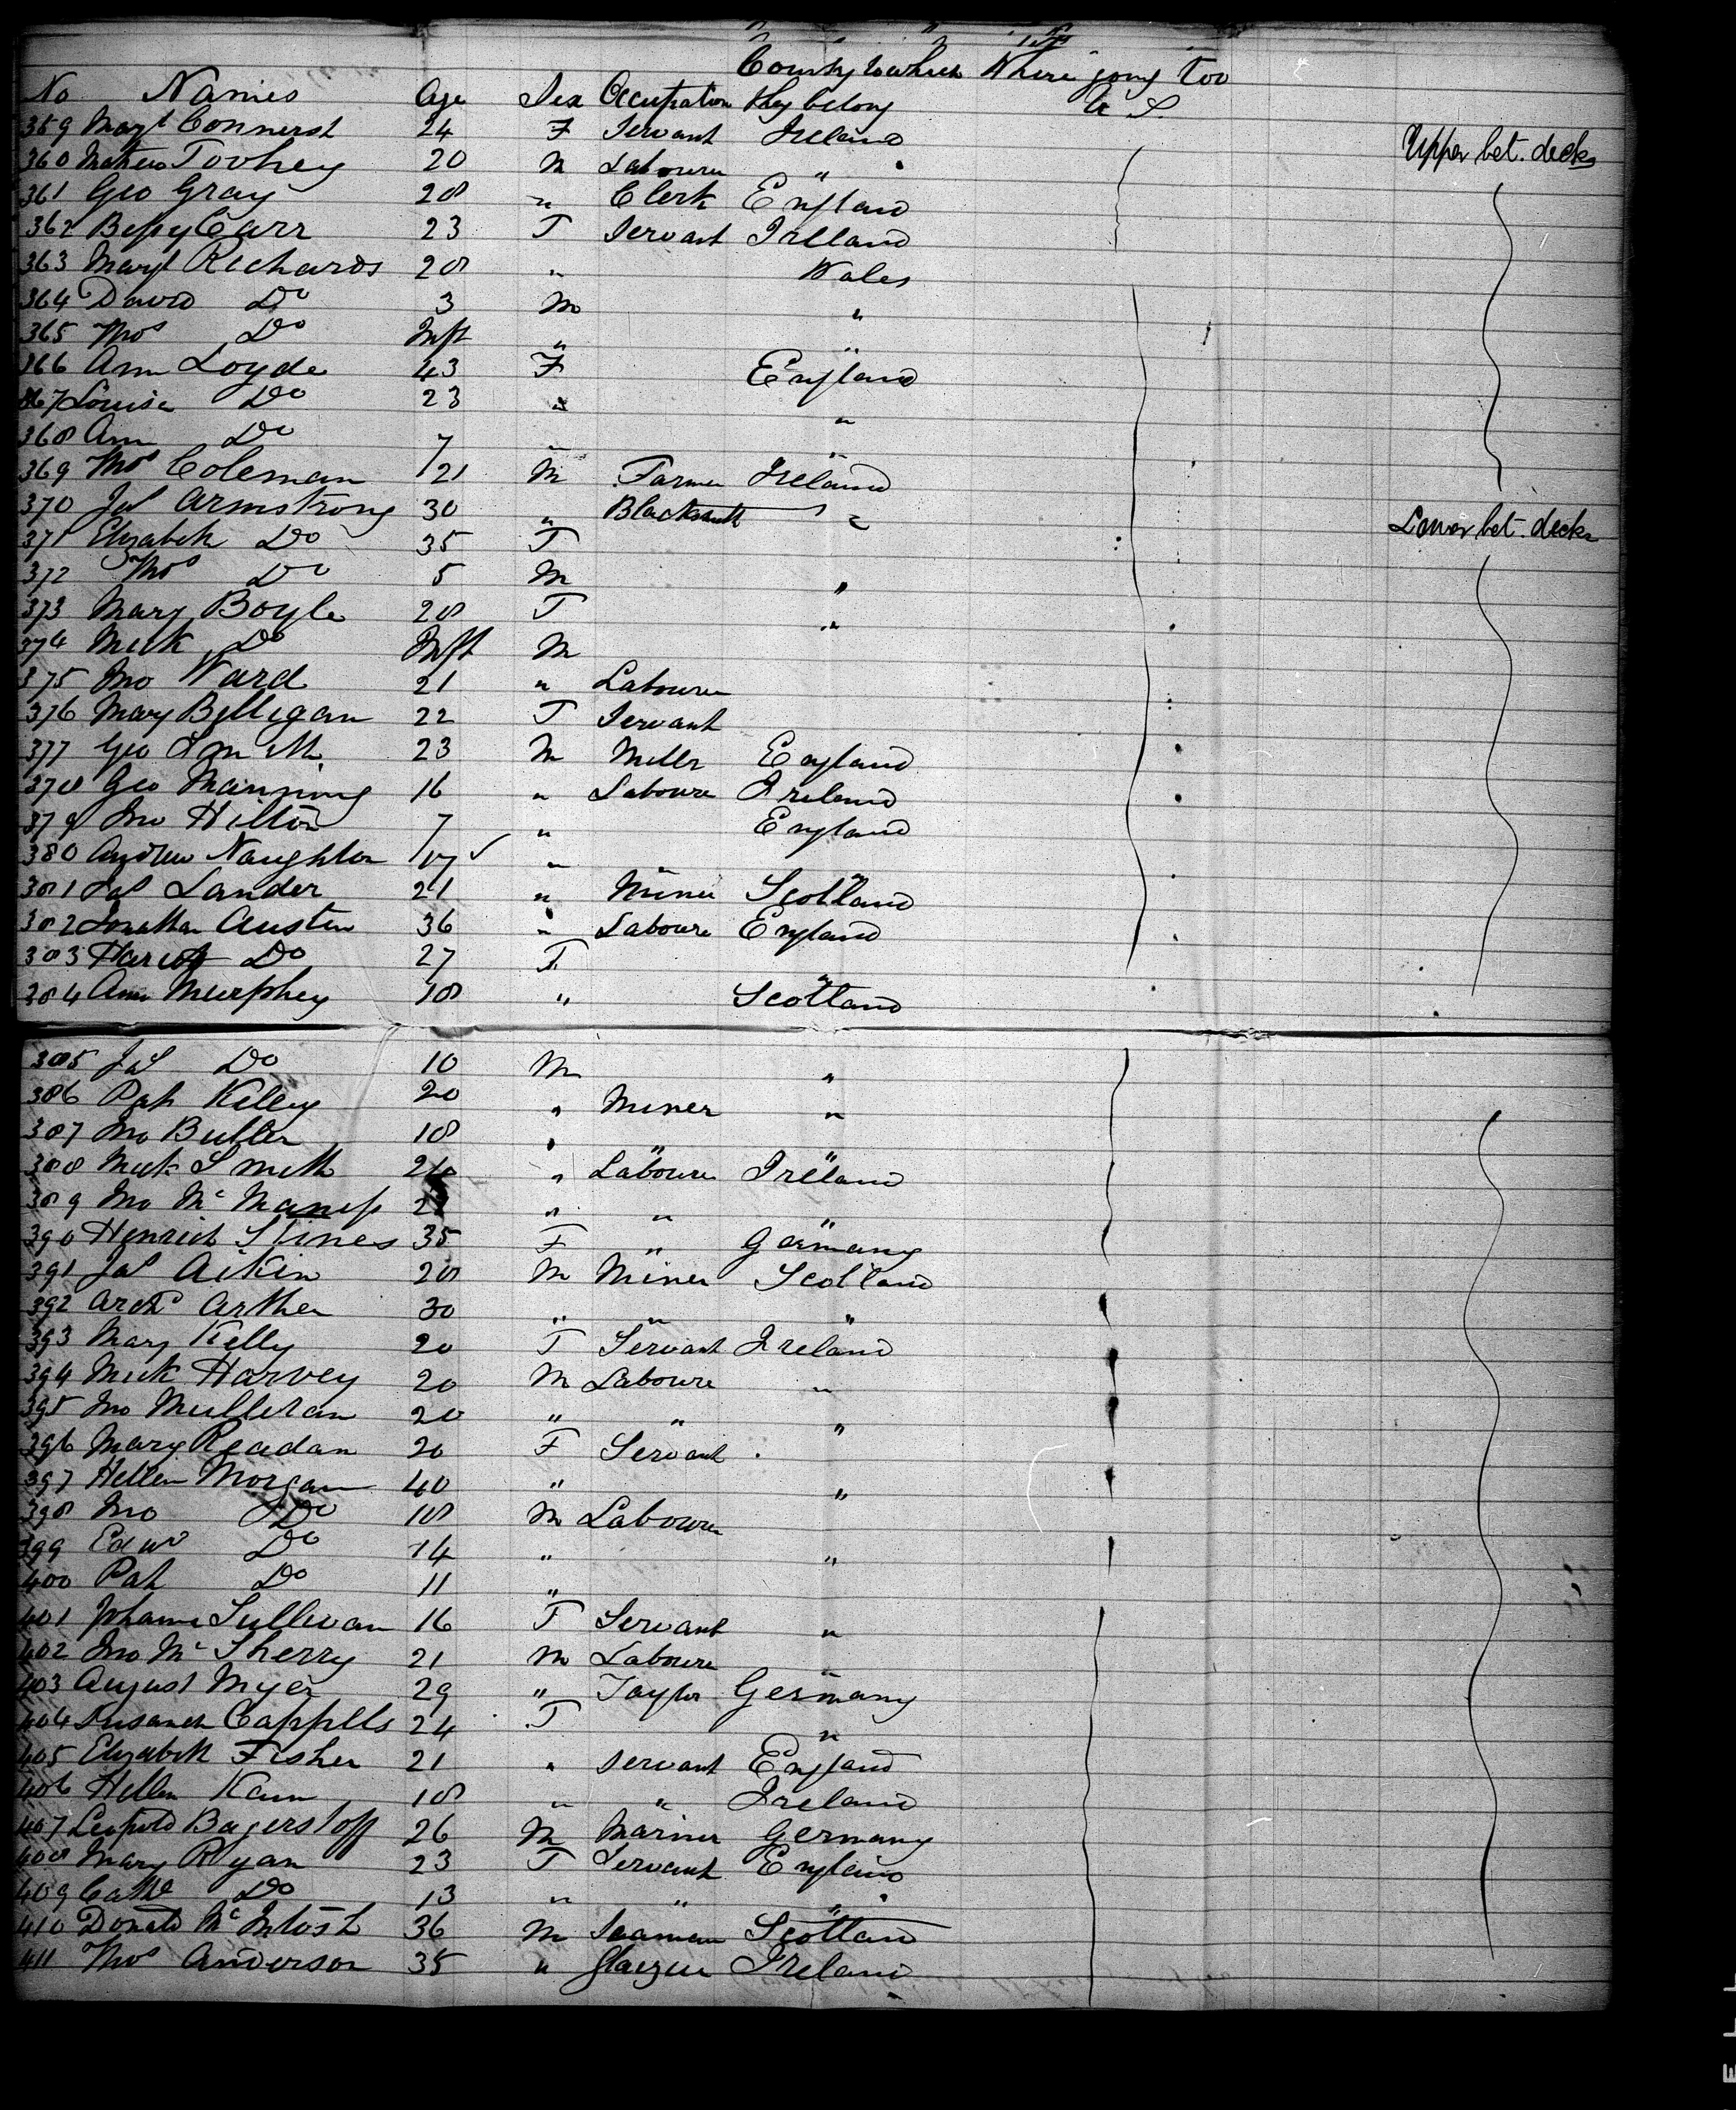 County to which Where going too
No Names Age Sex Occupation they belong U S.
359 Margt Connerst 24 F Servant Ireland
360 Mathew Toohey 20 M Labourer " Upper bet. decks
361 Geo Gray 28 " Clerk England
362 Bessy Carr 23 F Servant Ireland
363 Margt Richards 28 " Wales
364 David Do 3 M "
365 Thos Do Inft " "
366 Ann Loyde 43 F England
367 Louisa Do 23 " "
368 Ann Do 7 " "
369 Thos Coleman 21 M Farmer Ireland
370 Jas Armstrong 30 " Blacksmith " Lower bet. decks
371 Elizabeth Do 35 F
372 Thos Do 5 M "
373 Mary Boyle 28 F "
374 Mick Do Inft M
375 Jno Ward 21 " Labourer
376 Mary Billigan 22 F Servant
377 Geo Smith 23 M Miller England
378 Geo Manning 16 " Laboure Ireland
379 Jno Hilton 7 " England
380 Andrew Naughton 17 " "
381 Jas Lander 21 " Miner Scotland
382 Jonathan Austin 36 " Laboure England
383 Hariot Do 27 F "
384 Ann Murphey 18 " Scotland
385 Jas Do 10 M "
386 Pat Killey 20 " Miner "
387 Jno Butler 18 " " "
388 Mick Smith " Laboure Ireland
389 Jno Mc Maness " " "
390 Henrich Stines 35 F " Germany
391 Jas Aikin 28 M Miner Scotland
392 Archd Arther 30 " " "
393 Mary Kelly 20 F Servant Ireland
394 Mick Harvey 20 M Laboure "
395 Jno Mulleran 20 " " "
396 Mary Readan 20 F Servant
397 Hellen Morgan 40 " "
398 Jno Do 18 M Labourer
399 Edwd Do 14 " "
400 Pat Do 11 "
401 Johanna Sullivan 16 F Servant "
402 Jno Mc Sherry 21 M Laboure "
403 August Myer 29 " Taylor Germany
404 Susanah Cappells 24 F "
405 Elizabeth Fisher 21 " Servant England
406 Hellen Kann 18 " " Ireland
407 Leopold Bagerstoff 26 M Mariner Germany
408 Mary Ryan 23 F Servant England
409 Cathe Do 13 " " "
410 Donald Mc Intosh 36 M Seaman Scotland
411 Thos Anderson 35 " Ireland